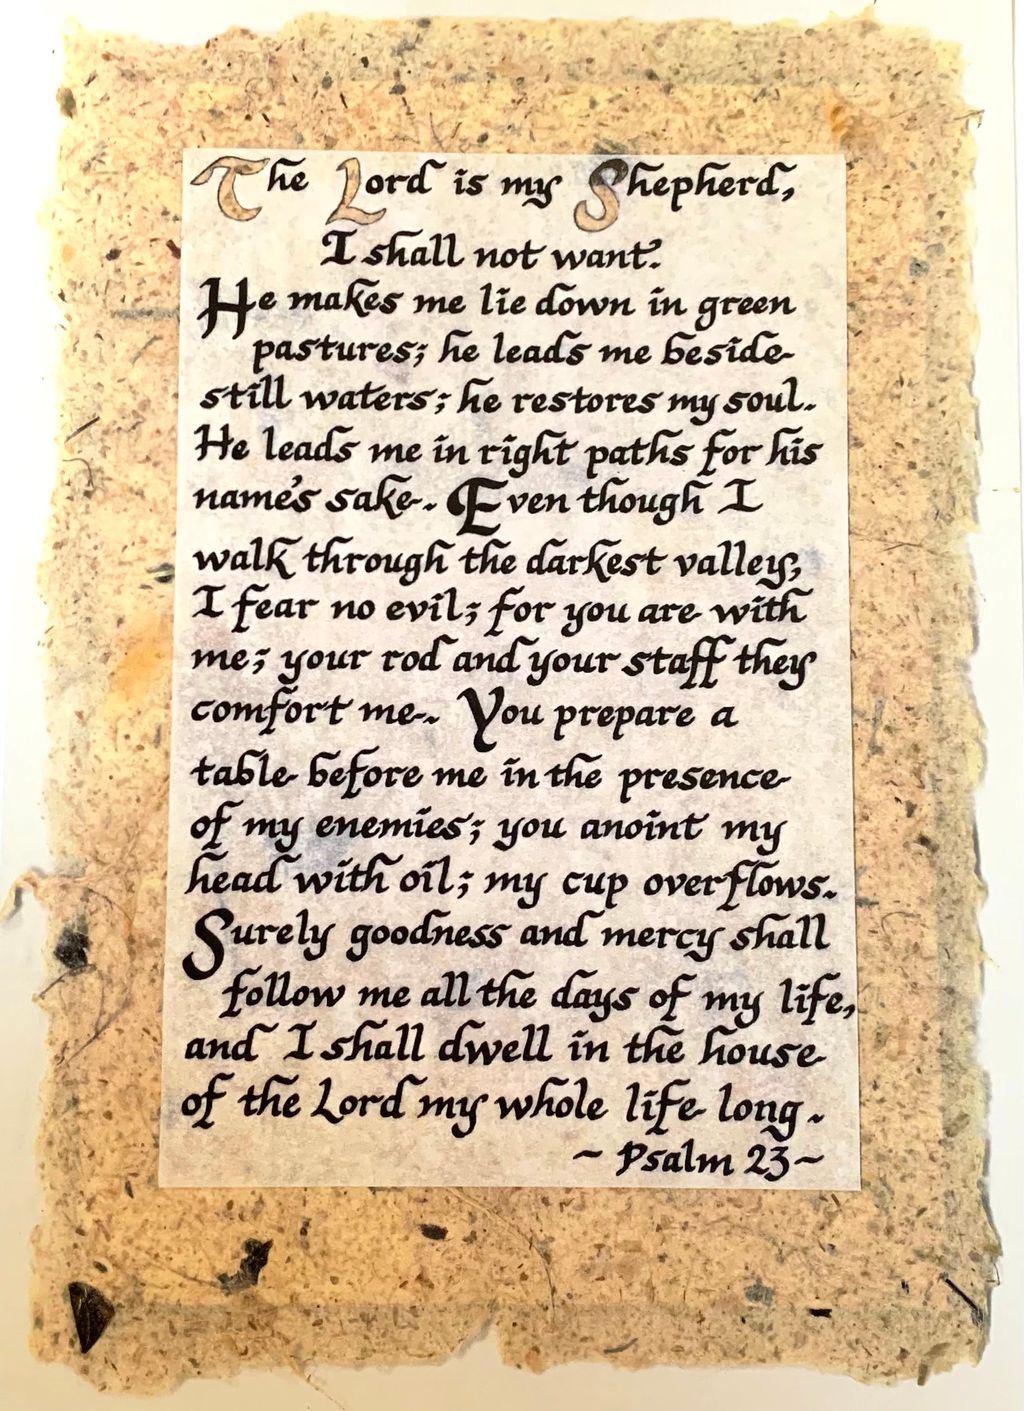 The Lord is my Shepherd,
I shall not want.
He makes me lie down in green
pastures; he leads me beside
still waters; he restores my soul.
He leads me in right paths for his
name's sake. Even though I
walk through the darkest valley,
I fear no evil; for you are with
me; your rod and your staff they
comfort me. You prepare a
table before me in the presence
of my enemies; you anoint my
head with oil; my cup overflows.
Surely goodness and mercy shall
follow me all the days of my life,
and I shall dwell in the house
of the Lord my whole life long.
~ Psalm 23 ~